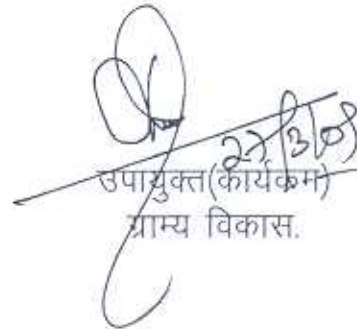 27/3/09
उपायुक्त(कार्यकम)
ग्राम्य विकास.